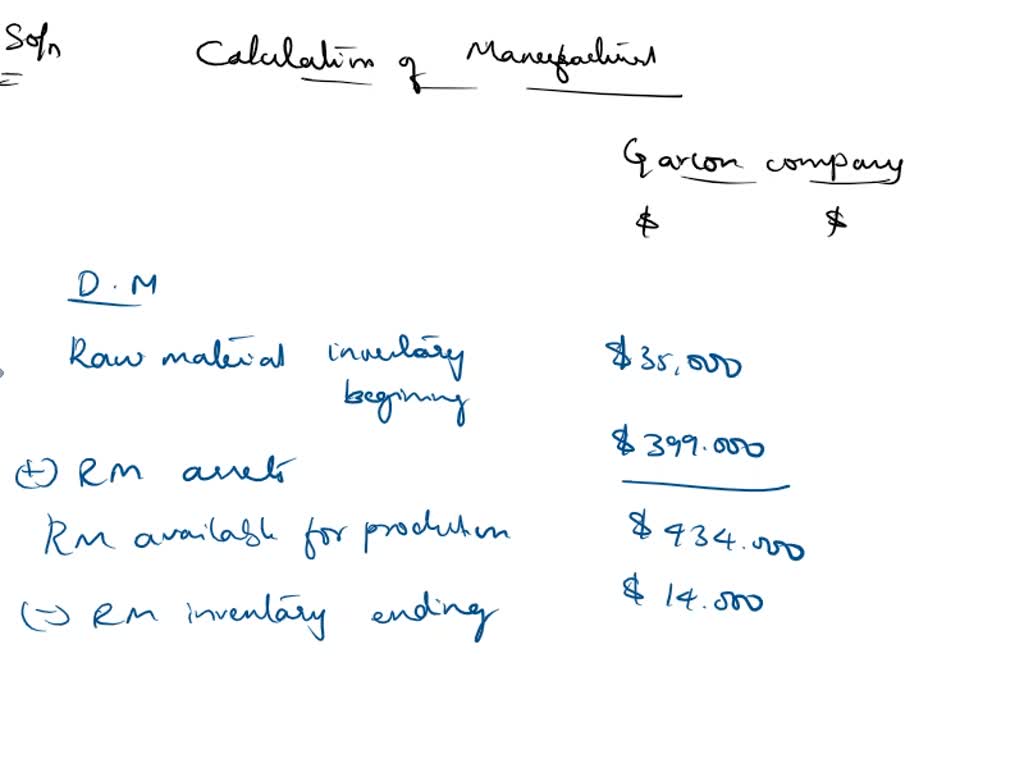 Soln
Calculation of Manufacturing
Garcon company
$ $
D.M
Raw material inventory
begining
$35,000
(+) RM assets $399.000
RM available for production $434.000
(-) RM inventory ending $14.000